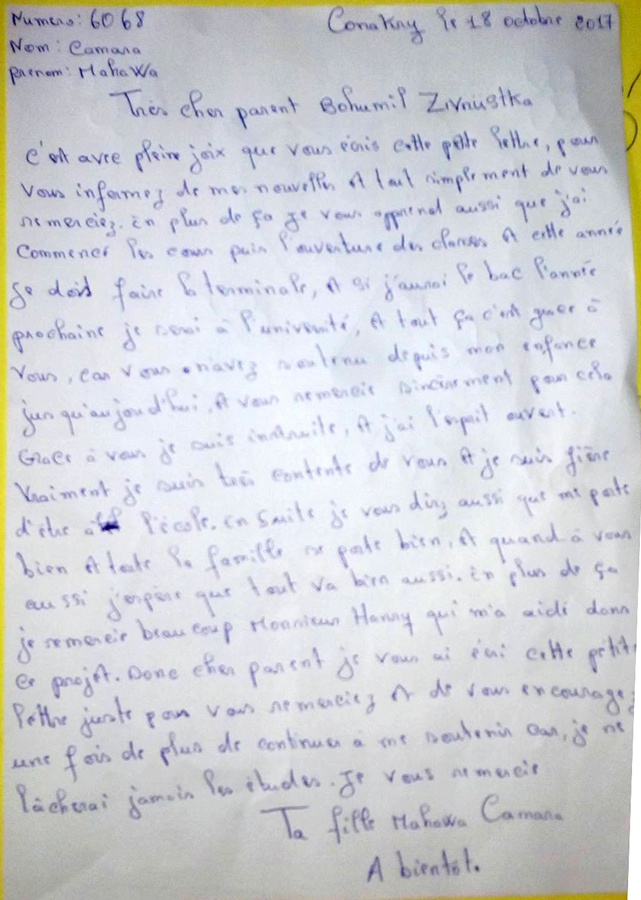 Numero: 6068
Conakry le 18 octobre 2017
Nom: Camara
prenom: Mahawa
Très cher parent Bohumil Zivnustka
C'est avec pleine joix que vous écris cette petite lettre, pour
vous informez de mes nouvelles et tout simplement de vous
remerciez. En plus de ça je vous apprend aussi que j'ai
Commencé les cours puis l'ouverture des classes et cette année
je dois faire la terminale, et si j'aurai le bac l'année
prochaine je serai à l'université, et tout ça c'est grace à
vous, car vous m'avez soutenu depuis mon enfance
jusqu'aujourd'hui, et vous remercie sincèrement pour cela
Grace à vous je suis instruite, et j'ai l'esprit ouvert.
Vraiment je suis très contente de vous et je suis fière
d'être à l'école. En suite je vous dirz aussi que me porte
bien et toute la famille se porte bien, et quand à vous
aussi j'espère que tout va bien aussi. En plus de ça
je remercie beaucoup Monsieur Hanny qui m'a aidé dans
ce projet. Donc cher parent je vous ai écri cette pétite
lettre juste pour vous remerciez et de vous encouragez
une fois de plus de continuer à me soutenir car, je ne
lâcherai jamais les études. Je vous remercie
Ta fille Mahawa Camara
A bientôt.